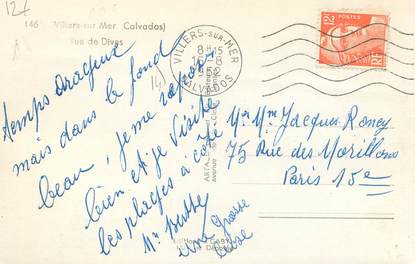 146 Villers-sur-Mer Calvados)
Rue de Dives
VILLERS-SUR-MER
8H15
CALVADOS
POSTES
RF
temps
mais dans le fond
beau, je me repose
bien et je visite
les plages à côté
une grosse
Mr Mme Jacques Roney
75 Rue des Morillons
Paris 15e